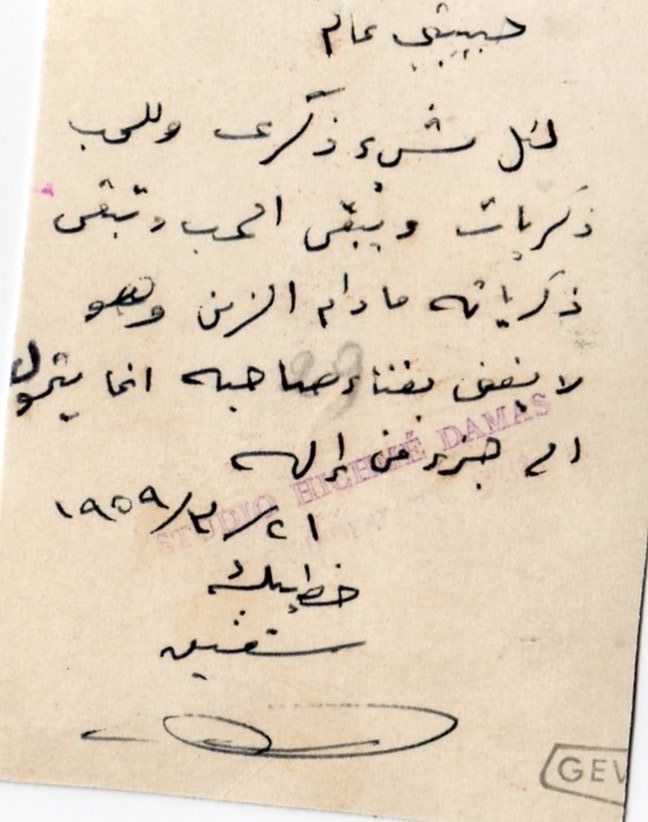 حبيبتي عالم
لكل شيء ذكرى وللحب
ذكريات ويبقى الحب وتبقى
ذكرياته مادام الزمن وهو
لا يفنى بفناء صاحبه انما يتحول
الى جزء من إله
٢١/٣/١٩٥٩
خطيبك
شفيق
STUDIO HICHMÉ DAMAS
GEV